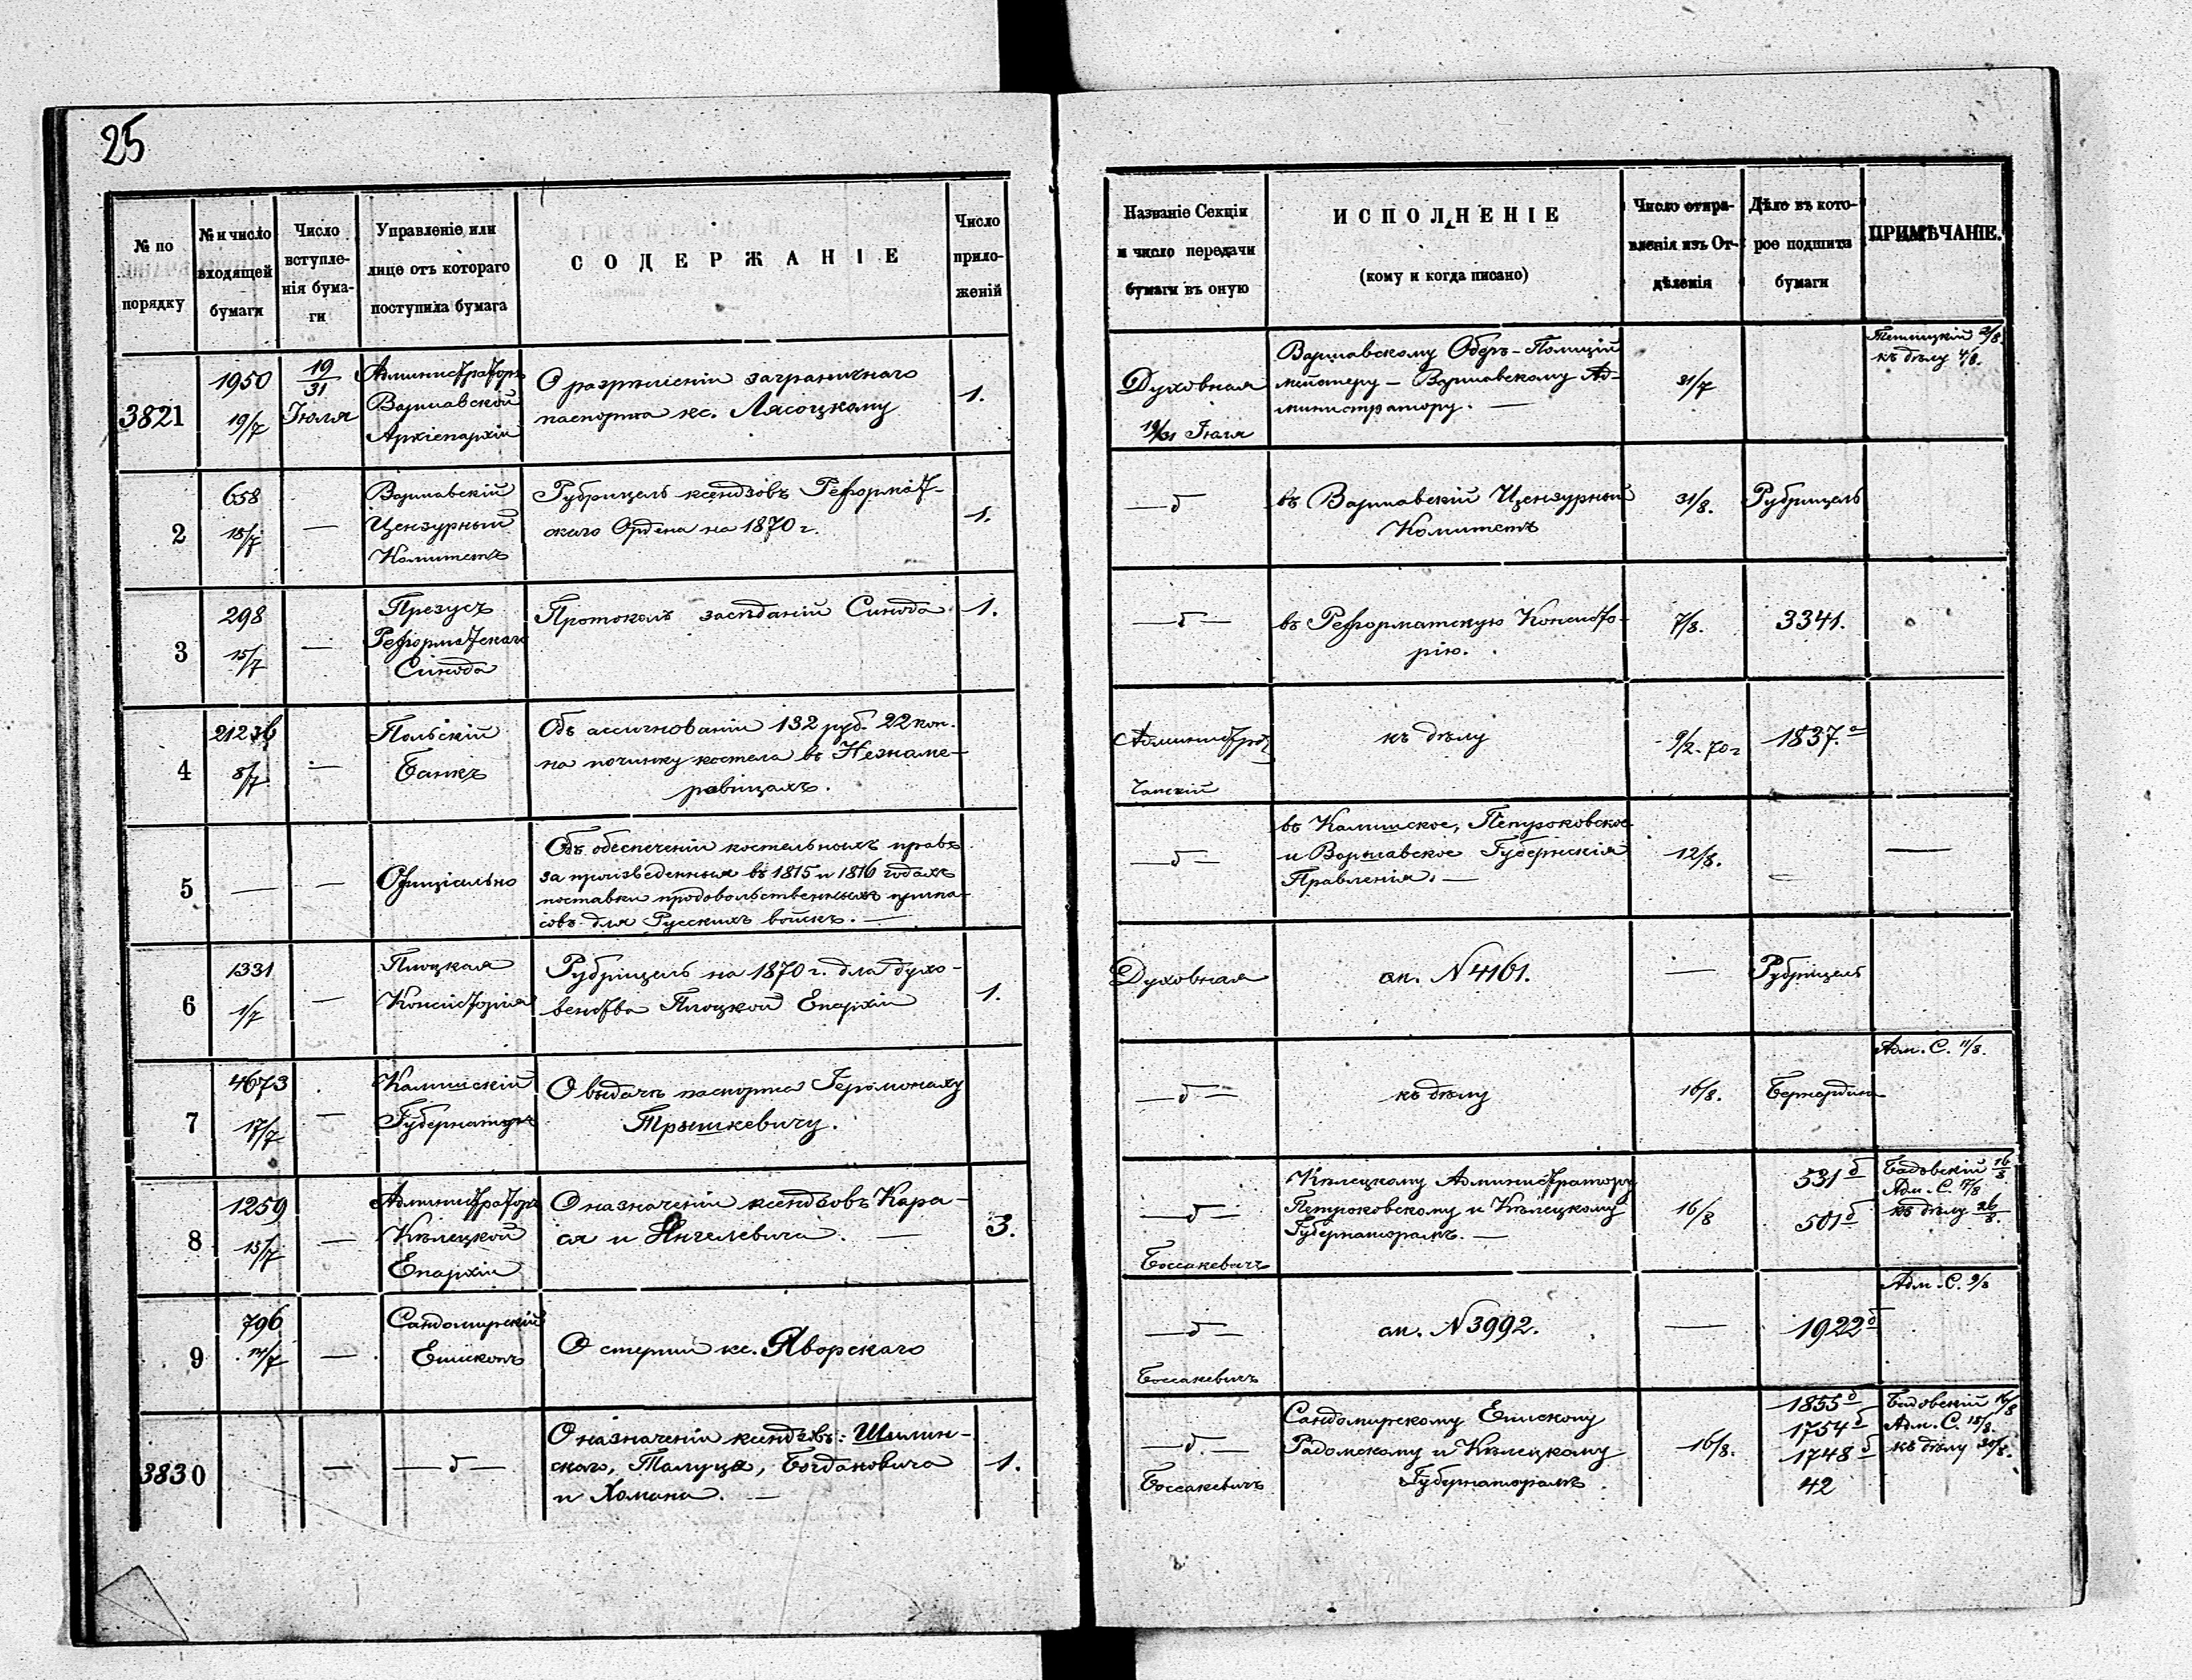 25
№ по
порядку
№ и число
входящей
бумаги
Число
вступле-
нія бума-
ги
Управленіе или
лице отъ котораго
поступила бумага
СОДЕРЖАНІЕ
Число
прило-
женій
Названіе Секціи
и число передачи
бумаги въ оную
ИСПОЛНЕНІЕ
(кому и когда писано)
Число отпра-
вленія изъ От-
дѣленія
Дѣло въ кото-
рое подшита
бумаги
ПРИМѢЧАНІЕ.
3821
1950
19/7
19/31
Іюля
Администраторъ
Варшавской
Архіепархіи
О разрѣшеніи заграничнаго
паспорта кс. Лясоцкому
1.
Духовная
19/31 Іюля
Варшавскому Оберъ-Полицій
мейстеру – Варшавскому Ад-
министратору. —
31/7
2/8
къ дѣлу 4/8.
2
658
18/7
—
Варшавскій
Цензурный
Комитетъ
Рубрицель ксендзовъ Реформат-
скаго Ордена на 1870 г.
1.
— д
въ Варшавскій Цензурный
Комитетъ
31/8.
Рубрицель
3
298
15/7
—
Презусъ
Реформатскаго
Синода
Протоколъ засѣданій Синода
1.
— д —
въ Реформатскую Консисто-
рію.
7/8.
3341.
4
21236
8/7
—
Польскій
Банкъ
Объ ассигнованіи 132 руб. 22 коп.
на починку костела въ Незнаме-
ровицахъ.
Администрат
Чапскій
къ дѣлу
9/2. 70 г
1837. а
5
—
—
Офиціально
Объ обеспеченіи костельныхъ правъ
за произведенныя въ 1815 и 1816 годахъ
поставки продовольственныхъ припа-
совъ для Русскихъ войскъ. —
— д —
въ Калишское, Петроковское
и Варшавское Губернскія
Правленія. —
12/8.
—
—
6
1331
1/7
—
Плоцкая
Консисторія
Рубрицель на 1870 г. для духо-
венства Плоцкой Епархіи
1.
Духовная
ан. N 4161.
—
Рубрицель
7
4673
17/7
—
Калишскій
Губернаторъ
О выдачѣ паспорта Іеромонаху
Трышкевичу.
— д —
къ дѣлу
16/8.
Бернардин
Адм. С. 11/8.
8
1259
15/7
—
Администраторъ
Кѣлецкой
Епархіи
О назначеніи ксендзовъ Кара-
ся и Янгелевича. —
3.
— д —
Боссакевичъ
Кѣлецкому Администратору
Петроковскому и Кѣлецкому
Губернаторамъ. —
16/8
531 б
501 б
Бадовскій 16/8
Адм. С. 17/8
къ дѣлу 26/8.
9
796
14/7
—
Сандомирскій
Епископъ
О смерти кс. Яворскаго
— д —
Боссакевичъ
ан. N 3992.
—
1922 б
Адм. С. 9/8
3830
—
— д —
О назначеніи ксендзовъ: Шилин-
скаго, Талуця, Богдановича
и Хомана. —
1.
— д. —
Боссакевичъ
Сандомирскому Епископу
Радомскому и Кѣлецкому
Губернаторамъ.
16/8.
1855 б
1754 б
1748 б
42
Бадовскій 16/8
Адм. С. 18/8.
къ дѣлу 30/8.